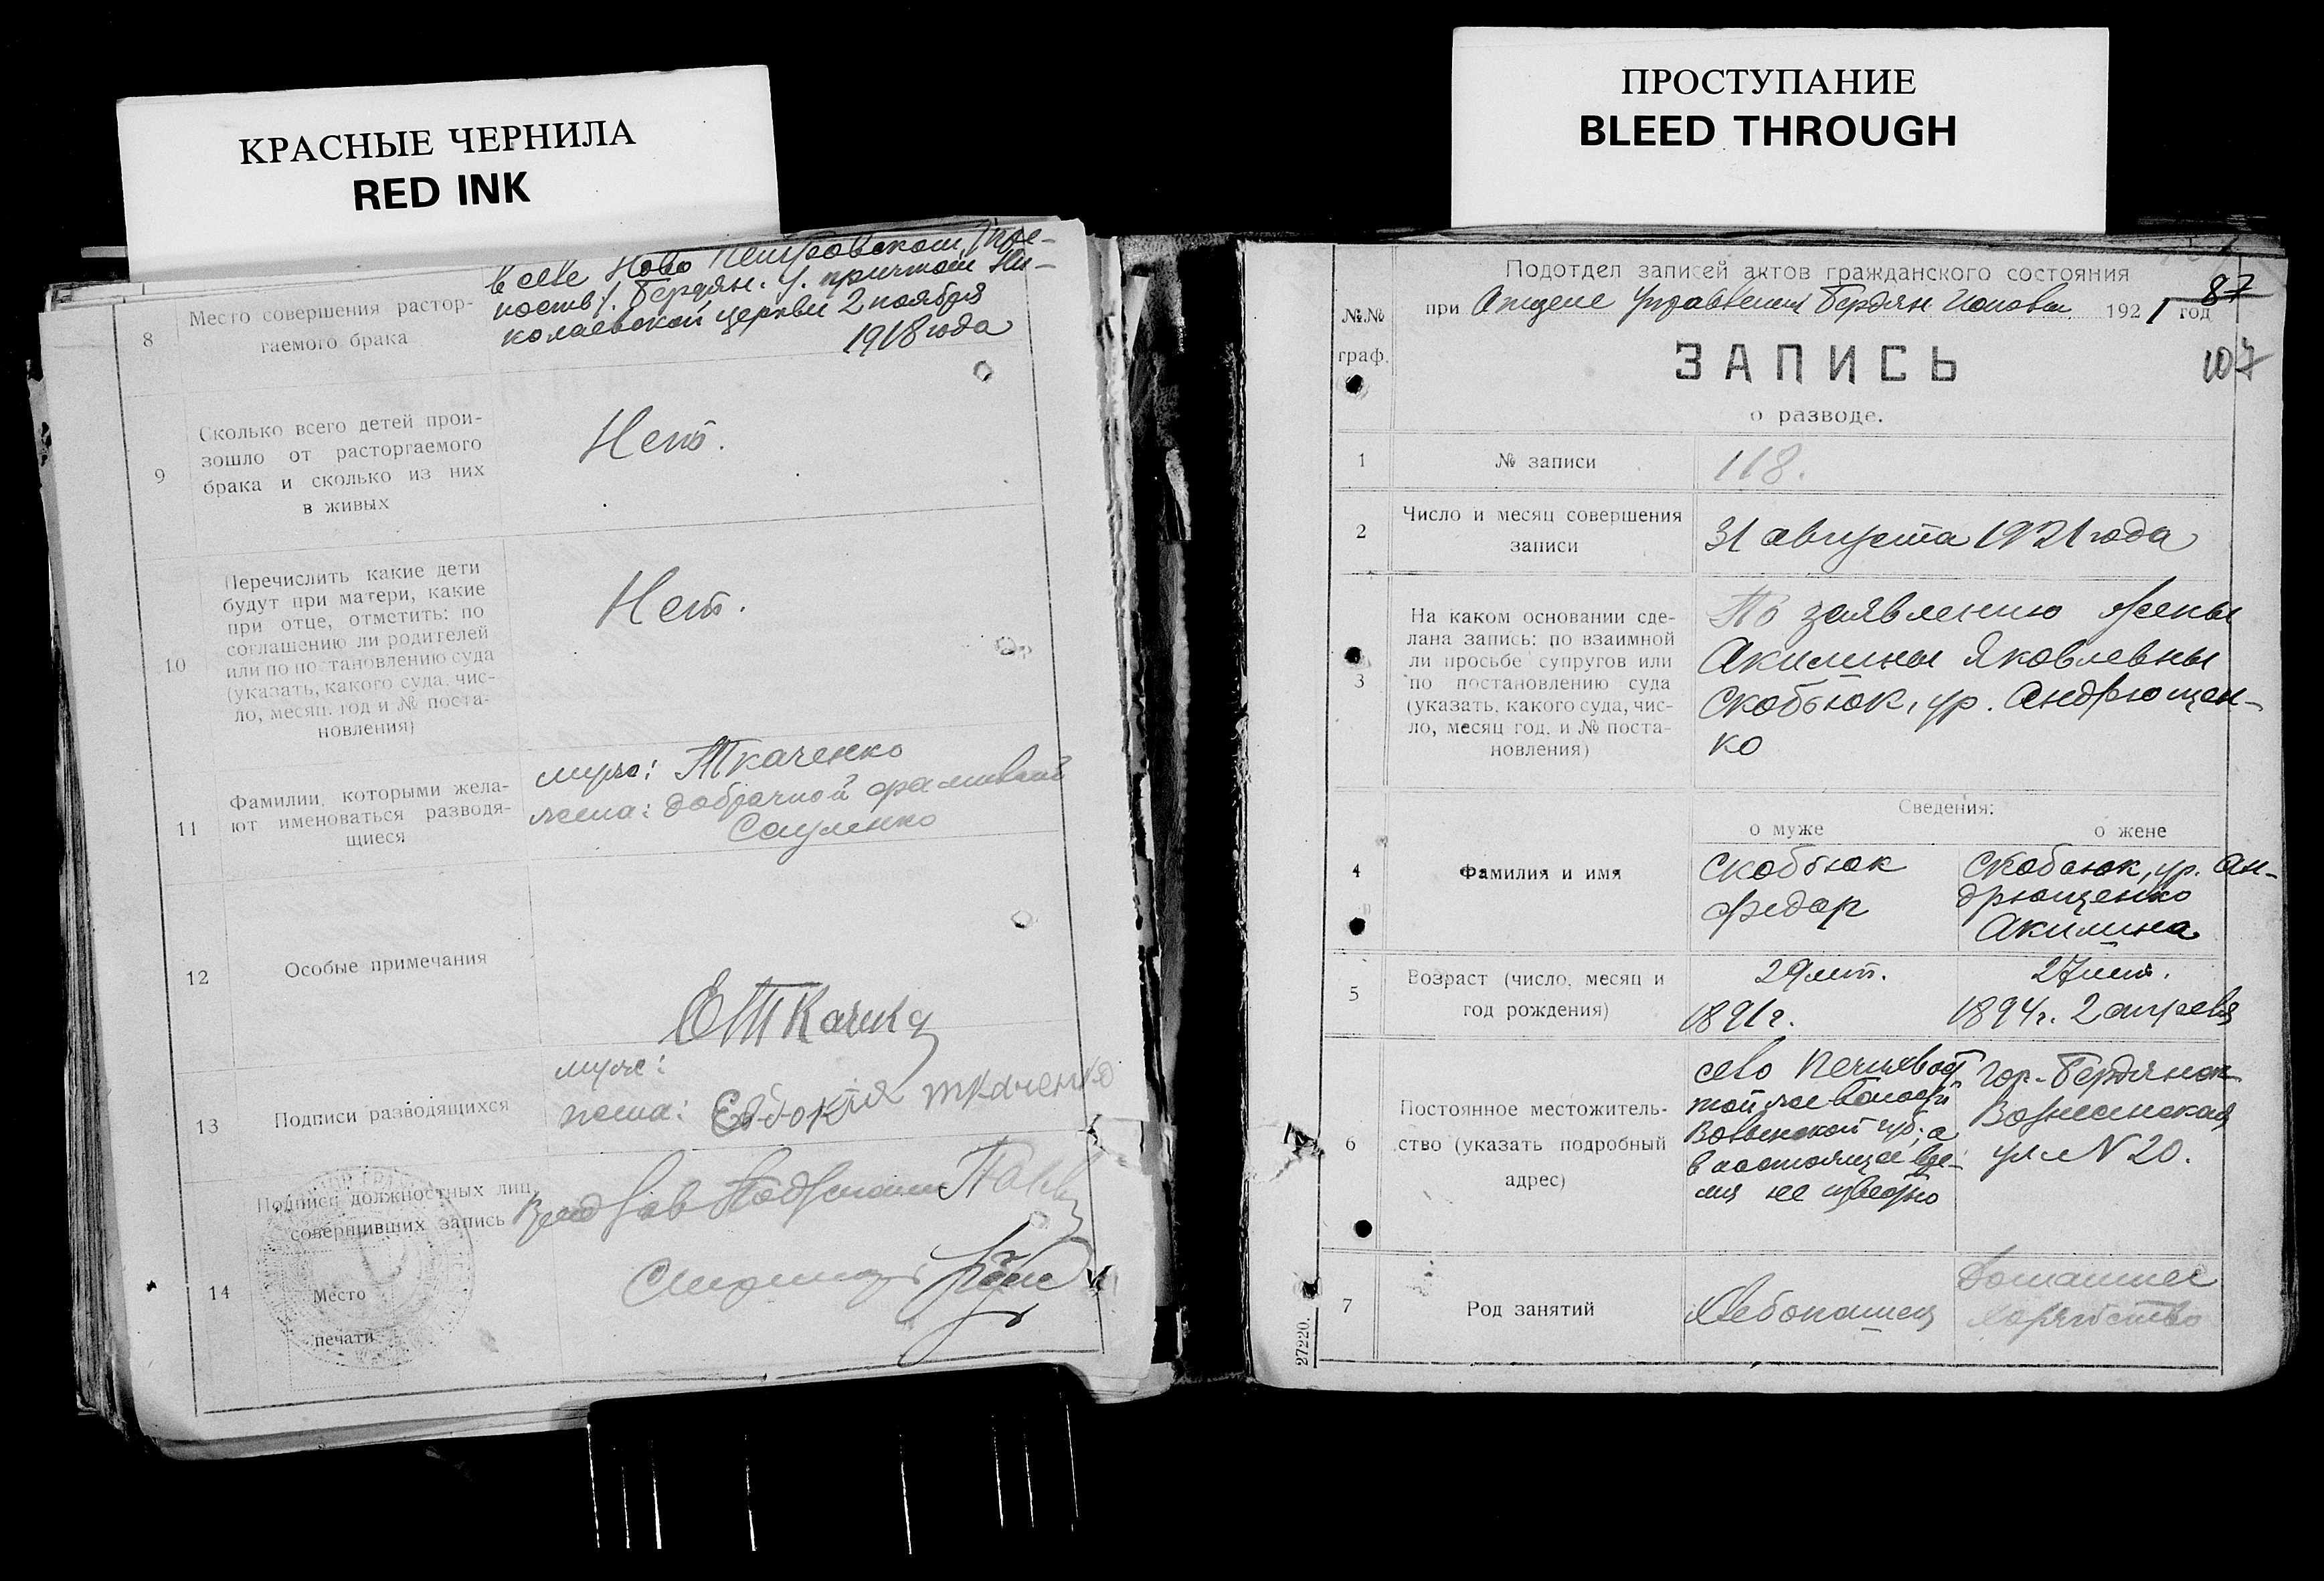 КРАСНЫЕ ЧЕРНИЛА
RED INK
8
Место совершения растор-
гаемого брака
в селе Ново Петровском (кре-
пость). Бердян. у. причтом Ни-
колаевской церкви 2 ноября
1918 года
9
Сколько всего детей прои-
зошло от расторгаемого
брака и сколько из них
в живых
Нет.
10
Перечислить какие дети
будут при матери, какие
при отце, отметить: по
соглашению ли родителей
или по постановлению суда
(указать, какого суда, чис-
ло, месяц, год и № поста-
новления)
Нет.
11
Фамилии, которыми жела-
ют именоваться разводя-
щиеся
муж: Ткаченко
жена: добрачной фамилией
Соуленко
12
Особые примечания
13
Подписи разводящихся
муж:
ЕТткачка
жена: Евдокия ткаченко
14
Подписи должностных лиц,
совершивших запись
Место
печати
Зав
ПРОСТУПАНИЕ
BLEED THROUGH
№№
граф.
Подотдел записей актов гражданского состояния
при Отделе Управления Бердян 1921 год
87
107
ЗАПИСЬ
о разводе.
1
№ записи
118.
2
Число и месяц совершения
записи
31 августа 1921 года
3
На каком основании сде-
лана запись: по взаимной
ли просьбе супругов или
по постановлению суда
(указать, какого суда, чис-
ло, месяц год, и № поста-
новления)
По заявлению жены
Акилины Яковлевны
Скобьюк, ур. Андрющен-
ко
Сведения:
о муже
о жене
4
Фамилия и имя
Скобьюк
Федор
Скобьюк, ур. Ан-
дрющенко
Акилина
5
Возраст (число, месяц и
год рождения)
29 лет.
1891 г.
27 лет.
1894 г. 2 апреля
6
Постоянное местожитель-
ство (указать подробный
адрес)
село
той же волости
Волынской губ; а
в настоящее вре-
мя не известно
гор. Бердянск
Вознесенская
ул. N 20.
7
Род занятий
Хлебопашец
Домашнее
хозяйство
27220.